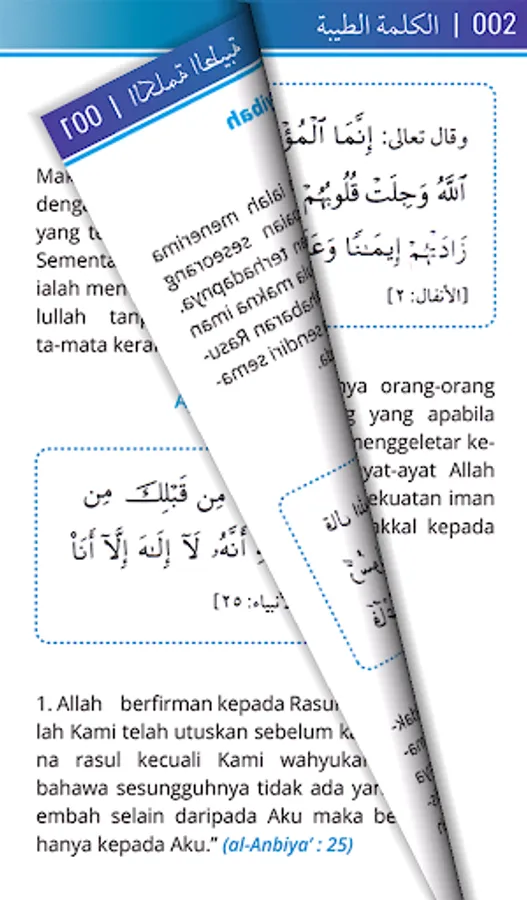 002 | الكلمة الطيبة
001 | الكلمة الطيبة
وقال تعالى: إِنَّمَا ٱلۡمُؤۡ
ٱللَّهُ وَجِلَتۡ قُلُوبُهُمۡ
زَادَتۡهُمۡ إِيمَٰنٗا
[الأنفال: ٢]
yang
Sementa
ialah men
lullah tanp
ta-mata kera
ialah menerima
seseorang
terhadapnya.
makna iman
habaran Rasu-
sendiri sema-
nya orang-orang
yang apabila
menggeletar ke-
yat-ayat Allah
ekuatan iman
akkal kepada
مِن قَبۡلِكَ مِن
أَنَّهُۥ لَآ إِلَٰهَ إِلَّآ أَنَا۠
نبياء: ٢٥]
1. Allah berfirman kepada Rasu
lah Kami telah utuskan sebelum
na rasul kecuali Kami wahyuka
bahawa sesungguhnya tidak ada yan
embah selain daripada Aku maka be
hanya kepada Aku.” (al-Anbiya’ : 25)